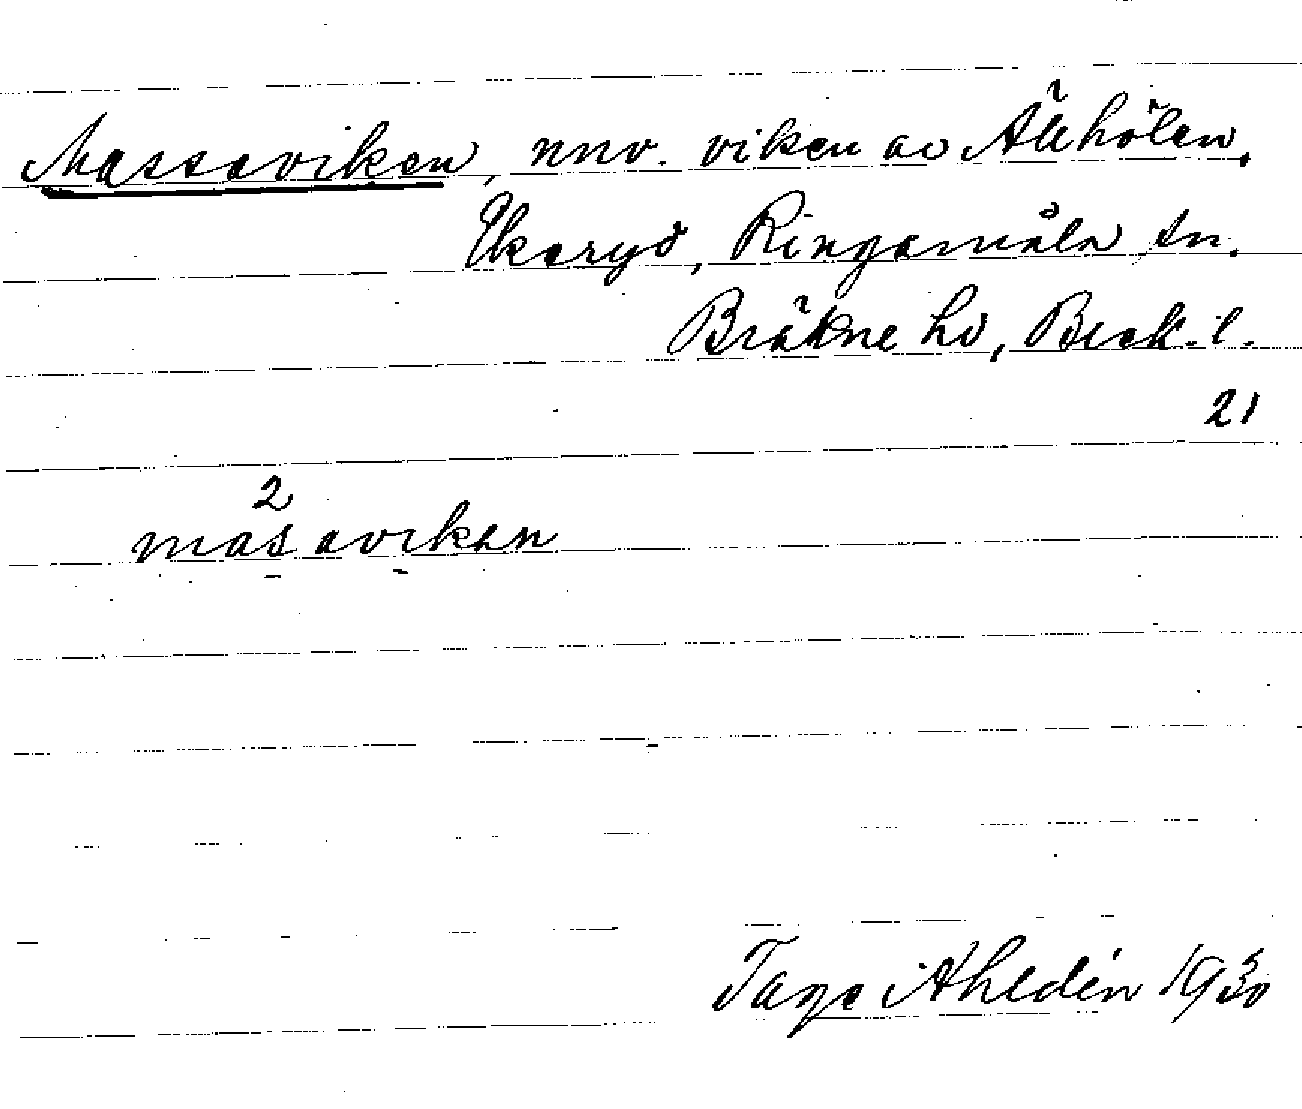 Massaviken, nnv. viken av Älhölen,
Ekeryd, Ringamåla sn.
Bräkne hd, Blek. l.
21
2
masaviken
Tage Ahldén 1930